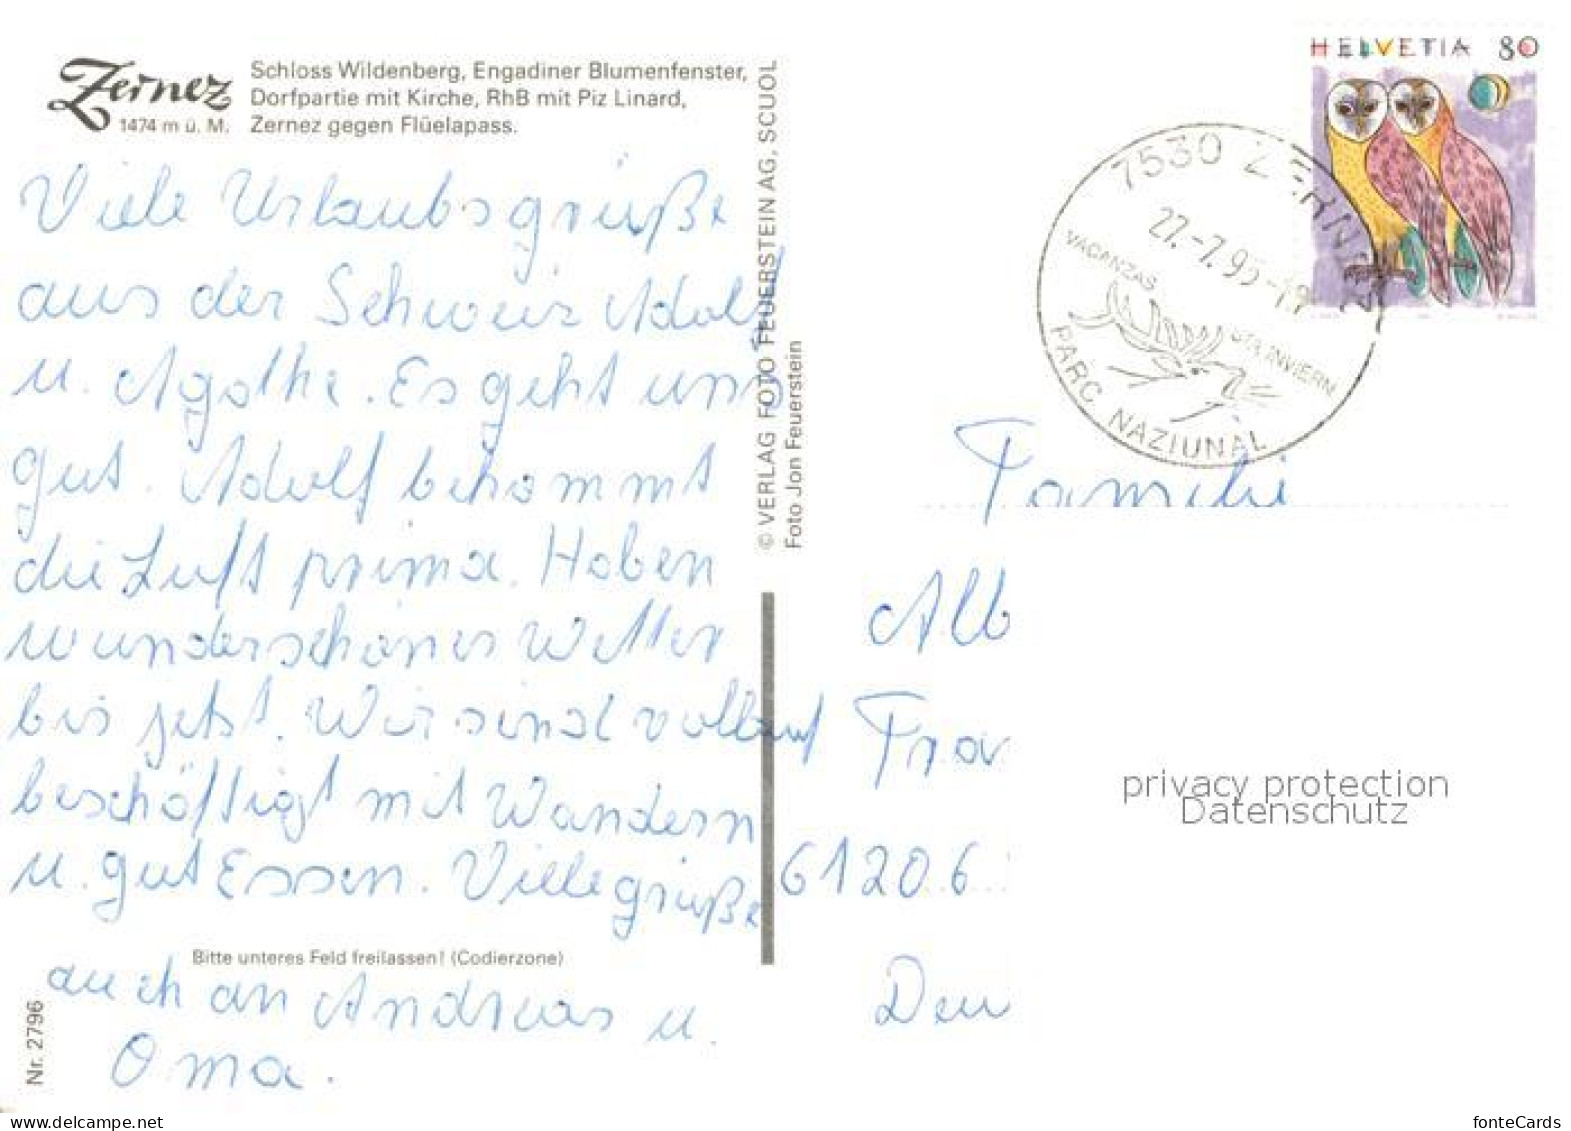 Zernez
1474 m ü. M.
Schloss Wildenberg, Engadiner Blumenfenster,
Dorfpartie mit Kirche, RhB mit Piz Linard,
Zernez gegen Flüelapass.
Viele Urlaubsgrüße
aus der Schweiz Adolf
u. Agathe. Es geht uns
gut. Adolf bekommt
die Luft prima. Haben
wunderschönes Wetter
bis jetzt. Wir sind vollauf
beschäftigt mit Wandern
u. gut Essen. Viele grüße
auch an Andreas u.
Oma.
Bitte unteres Feld freilassen! (Codierzone)
Nr. 2796
© VERLAG FOTO FEUERSTEIN AG, SCUOL
Foto Jon Feuerstein
HELVETIA 80
7530 ZERNEZ
27.-7.95-19
VACANZAS
STA INVIERN
PARC NAZIUNAL
Familie
Alb
Fra
61206
privacy protection
Datenschutz
www.delcampe.net
fonteCards